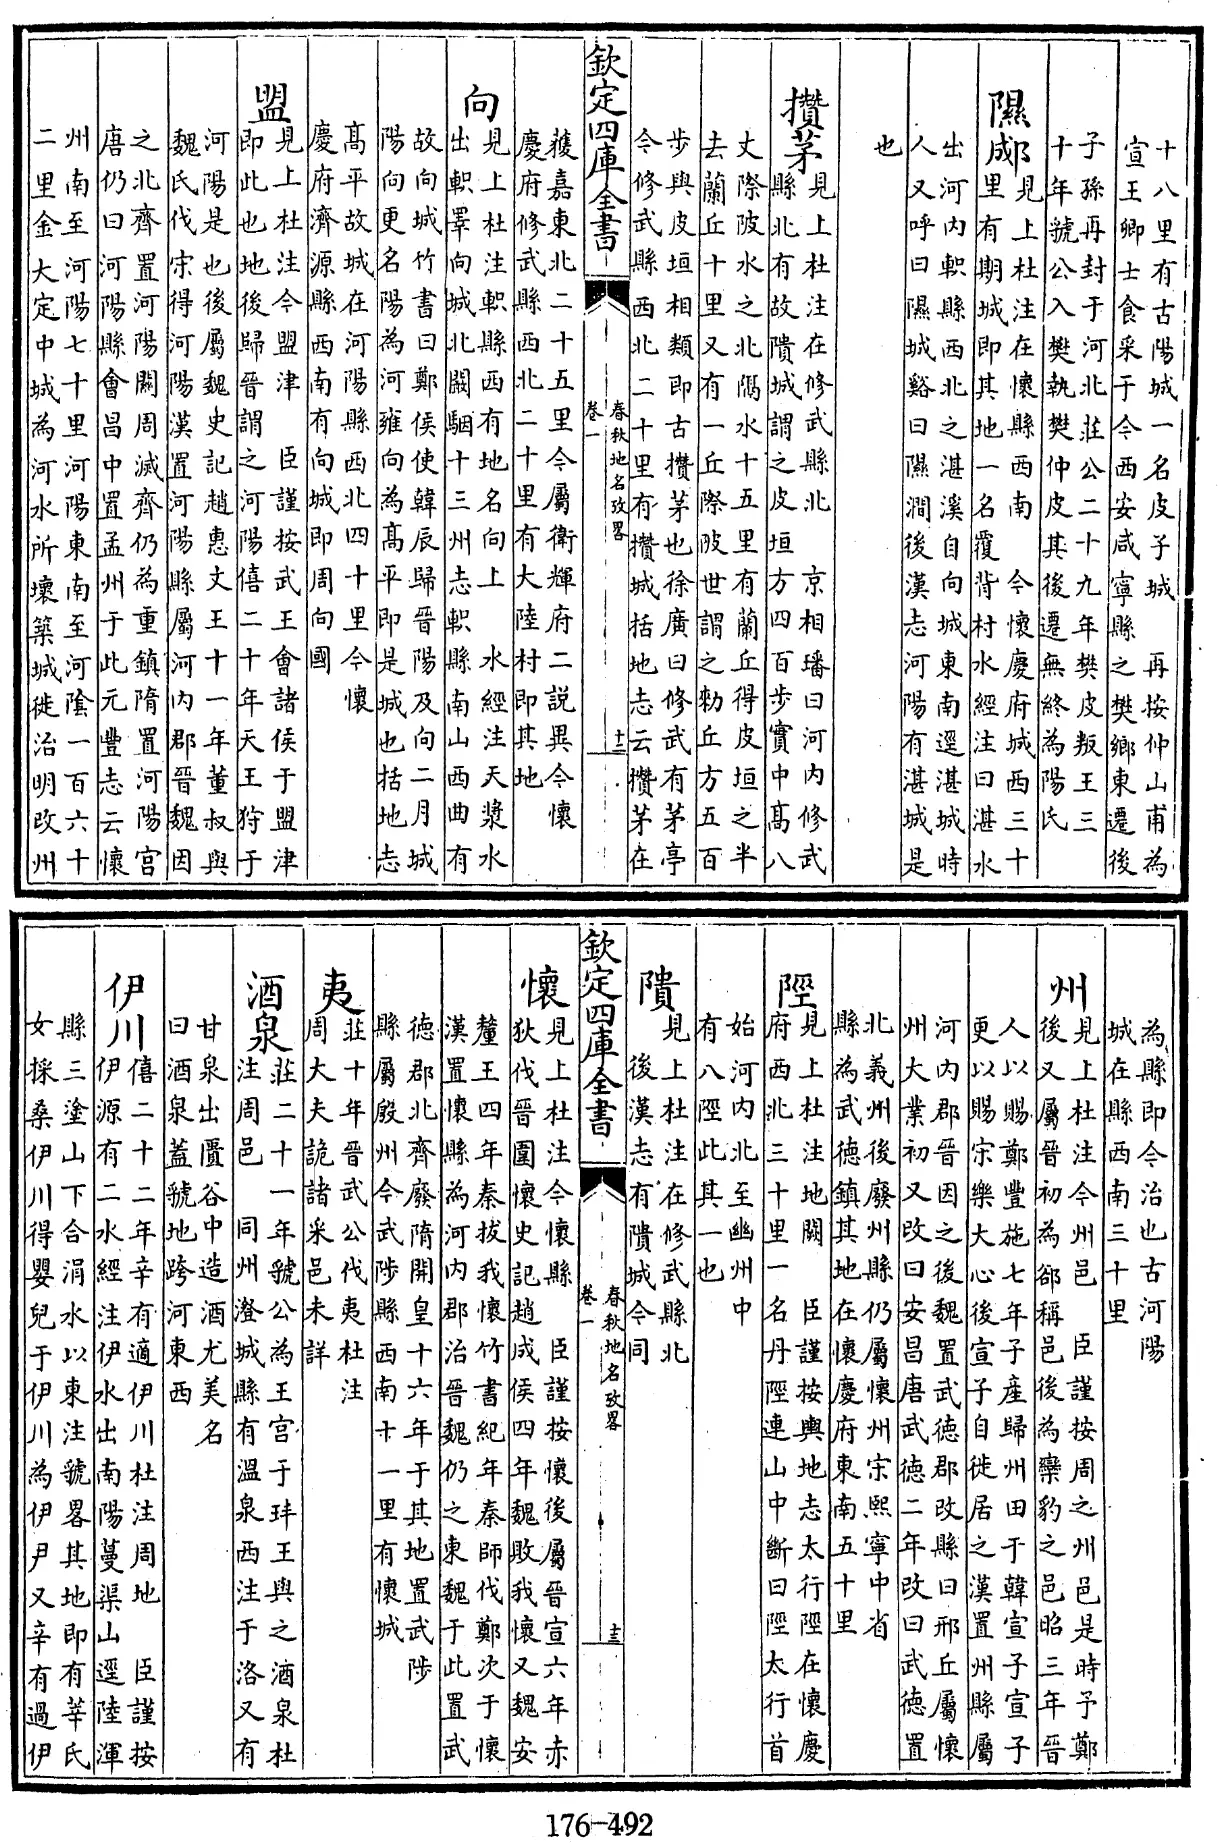 十八里有古陽城一名皮子城　再按仲山甫為
宣王卿士食采于今西安咸寧縣之樊鄉東遷後
子孫再封于河北莊公二十九年樊皮叛王三
十年虢公入樊執樊仲皮其後遷無終為陽氏
隰郕
見上杜注在懷縣西南　今懷慶府城西三十
里有期城即其地一名覆背村水經注曰湛水
出河内軹縣西北之湛溪自向城東南逕湛城時
人又呼曰隰城谿曰隰澗後漢志河陽有湛城是
也
攢茅
見上杜注在修武縣北　京相璠曰河内修武
縣北有故隤城謂之皮垣方四百步實中高八
丈際陂水之北隅水十五里有蘭丘得皮垣之半
去蘭丘十里又有一丘際陂世謂之勑丘方五百
步與皮垣相類即古攢茅也徐廣曰修武有茅亭
今修武縣西北二十里有攢城括地志云攢茅在
欽定四庫全書
春秋地名攷畧
卷一
十二
獲嘉東北二十五里今屬衛輝府二説異今懷
慶府修武縣西北二十里有大陸村即其地
向
見上杜注軹縣西有地名向上　水經注天漿水
出軹睪向城北闞駰十三州志軹縣南山西曲有
故向城竹書曰鄭侯使韓辰歸晉陽及向二月城
陽向更名陽為河雍向為高平即是城也括地志
高平故城在河陽縣西北四十里今懷
慶府濟源縣西南有向城即周向國
盟
見上杜注今盟津　臣謹按武王會諸侯于盟津
即此也地後歸晉謂之河陽僖二十年天王狩于
河陽是也後屬魏史記趙惠文王十一年董叔與
魏氏伐宋得河陽漢置河陽縣屬河内郡晉魏因
之北齊置河陽關周滅齊仍為重鎮隋置河陽宮
唐仍曰河陽縣會昌中置孟州于此元豐志云懷
州南至河陽七十里河陽東南至河陰一百六十
二里金大定中城為河水所壞築城徙治明改州
為縣即今治也古河陽
城在縣西南三十里
州
見上杜注今州邑　臣謹按周之州邑是時予鄭
後又屬晉初為郤稱邑後為欒豹之邑昭三年晉
人以賜鄭豐施七年子產歸州田于韓宣子宣子
更以賜宋樂大心後宣子自徙居之漢置州縣屬
河内郡晉因之後魏置武德郡改縣曰邢丘屬懷
州大業初又改曰安昌唐武德二年改曰武德置
北義州後廢州縣仍屬懷州宋熙寧中省
縣為武德鎮其地在懷慶府東南五十里
陘
見上杜注地闕　臣謹按輿地志太行陘在懷慶
府西北三十里一名丹陘連山中斷曰陘太行首
始河内北至幽州中
有八陘此其一也
隤
見上杜注在修武縣北
後漢志有隤城今同
欽定四庫全書
春秋地名攷畧
卷一
十三
懷
見上杜注今懷縣　臣謹按懷後屬晉宣六年赤
狄伐晉圍懷史記趙成侯四年魏敗我懷又魏安
釐王四年秦拔我懷竹書紀年秦師伐鄭次于懷
漢置懷縣為河内郡治晉魏仍之東魏于此置武
德郡北齊廢隋開皇十六年于其地置武陟
縣屬殷州今武陟縣西南十一里有懷城
夷
莊十年晉武公伐夷杜注
周大夫詭諸采邑未詳
酒泉
莊二十一年虢公為王宮于玤王與之酒泉杜
注周邑　同州澄城縣有溫泉西注于洛又有
甘泉出匱谷中造酒尤美名
曰酒泉蓋虢地跨河東西
伊川
僖二十二年辛有適伊川杜注周地　臣謹按
伊源有二水經注伊水出南陽蔓渠山逕陸渾
縣三塗山下合涓水以東注虢畧其地即有莘氏
女採桑伊川得嬰兒于伊川為伊尹又辛有過伊
176-492